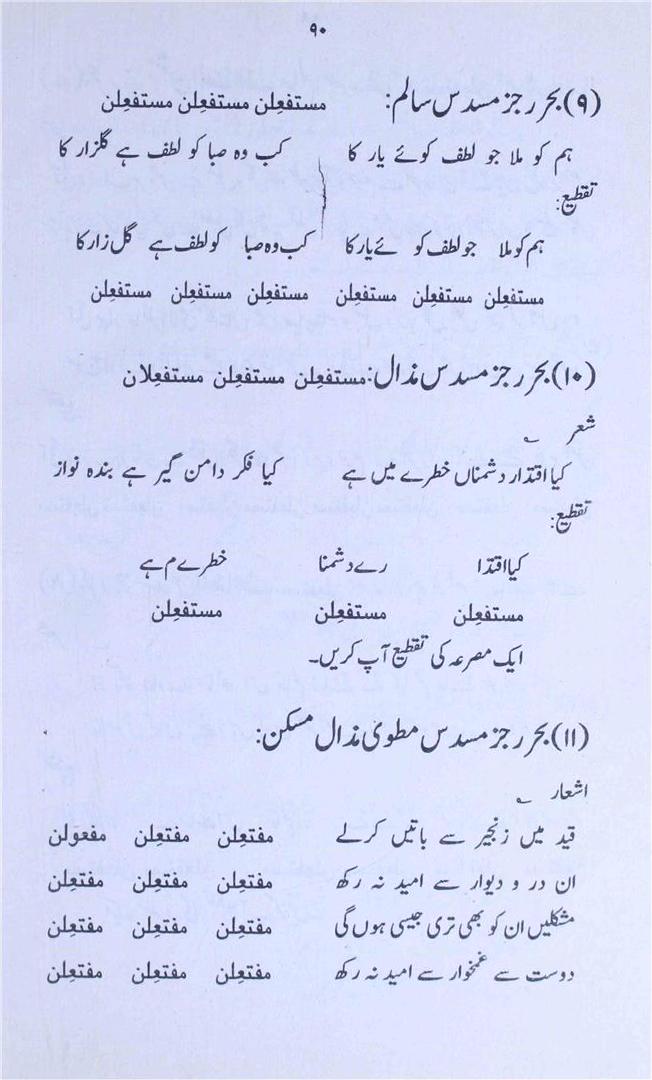 ۹۰
(۹) بحر رجز مسدس سالم: مستفعِلن مستفعِلن مستفعِلن
ہم کو ملا جو لطف کوئے یار کا کب وہ صبا کو لطف ہے گلزار کا
تقطیع:
ہم کو ملا جو لطف کو ئے یار کا کب وہ صبا کو لطف ہے گل زار کا
مستفعِلن مستفعِلن مستفعِلن مستفعِلن مستفعِلن مستفعِلن
(۱۰) بحر رجز مسدس مذال: مستفعِلن مستفعِلن مستفعِلان
شعر
کیا اقتدار دشمناں خطرے میں ہے کیا فکر دامن گیر ہے بندہ نواز
تقطیع:
کیا اقتدا رے دشمنا خطرے م ہے
مستفعِلن مستفعِلن مستفعِلن
ایک مصرعہ کی تقطیع آپ کریں۔
(۱۱) بحر رجز مسدس مطوی مذال مسکن:
اشعار
قید میں زنجیر سے باتیں کرلے مفتعِلن مفتعِلن مفعولن
ان در و دیوار سے امید نہ رکھ مفتعِلن مفتعِلن مفتعِلن
مشکلیں ان کو بھی تری جیسی ہوں گی مفتعِلن مفتعِلن مفتعِلن
دوست سے غمخوار سے امید نہ رکھ مفتعِلن مفتعِلن مفتعِلن